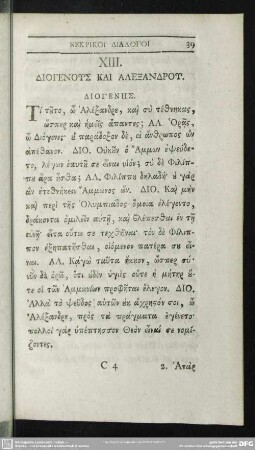 ΝΕΚΡΙΚΟΙ ΔΙΑΛΟΓΟΙ 39
XIII.
ΔΙΟΓΕΝΟΥΣ ΚΑΙ ΑΛΕΞΑΝΔΡΟΥ.
ΔΙΟΓΕΝΗΣ.
Τί τῦτο, ὦ Ἀλέξανδρε, καὶ σὺ τέθνηκας,
ὥσπερ καὶ ἡμεῖς ἅπαντες; ΑΛ. Ὁρᾷς,
ὦ Διόγενες· ὐ παράδοξον δὲ, εἰ ἄνθρωπος ὢν
ἀπέθανον. ΔΙΟ. Οὐκῦν ὁ Ἄμμων ἐψεύδε-
το, λέγων ἑαυτῦ σε εἶναι υἱόν; σὺ δὲ Φιλίπ-
πυ ἄρα ἦσθα; ΑΛ. Φιλίππυ δηλαδή· ὐ γὰρ
ἂν ἐτεθνήκειν Ἄμμωνος ὤν. ΔΙΟ. Καὶ μὴν
καὶ περὶ τῆς Ὀλυμπιάδος ὅμοια ἐλέγετο,
δράκοντα ὁμιλεῖν αὐτῇ, καὶ βλέπεσθαι ἐν τῇ
εὐνῇ· εἶτα ὕτω σε τεχθῆναι· τὸν δὲ Φίλιπ-
πον ἐξηπατῆσθαι, οἰόμενον πατέρα συ εἶ-
ναι. ΑΛ. Κἀγὼ ταῦτα ἤκυον, ὥσπερ σύ·
νῦν δὲ ὁρῶ, ὅτι ὐδὲν ὑγιὲς ὔτε ἡ μήτηρ ὔ-
τε οἱ τῶν Ἀμμωνίων προφῆται ἔλεγον. ΔΙΟ.
Ἀλλὰ τὸ ψεῦδος αὐτῶν ὐκ ἄχρηστόν σοι, ὦ
Ἀλέξανδρε, πρὸς τὰ πράγματα ἐγένετο·
πολλοὶ γὰρ ὑπέπτησσον Θεὸν εἶναί σε νομί-
ζοντες.
C 4 2. Ἀτὰρ